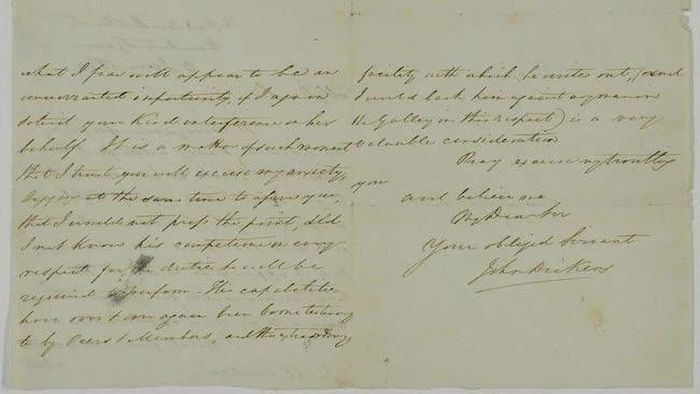 what I fear will appear to be an
unwarranted importunity if I again
solicit your kind interference on his
behalf. It is a matter of such moment
that I trust you will excuse my anxiety,
begging at the same time to assure you,
that I would not press the point, did
I not know his competence in every
respect for the duties he will be
required to perform. His capabilities
have over & over again been borne testimony
to by Peers & Members, and the
facility with which he writes out,
I would back him against any man in
the Gallery in this respect) is a very
valuable consideration
Pray excuse my troubling
you
and believe me
My Dear Sir
Your obliged Servant
John Dickens